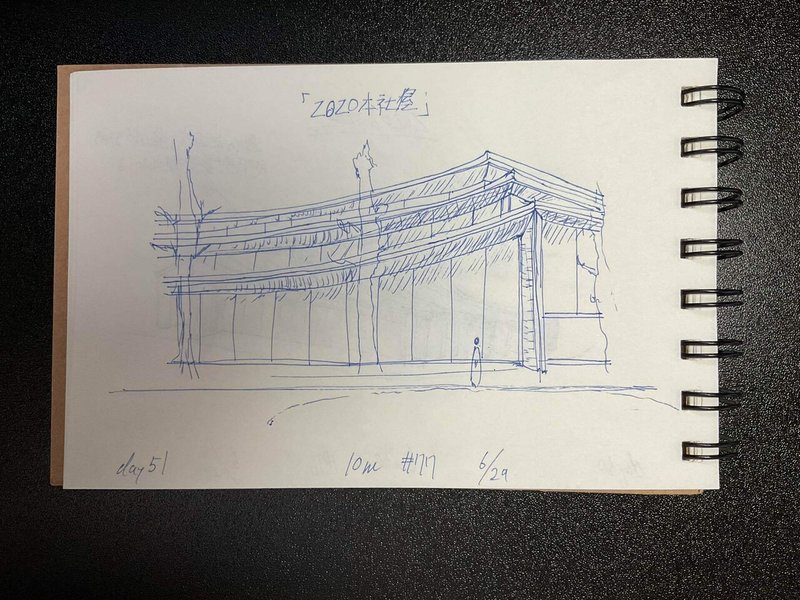 「2020本社屋」
day 51 10m #177 6/29